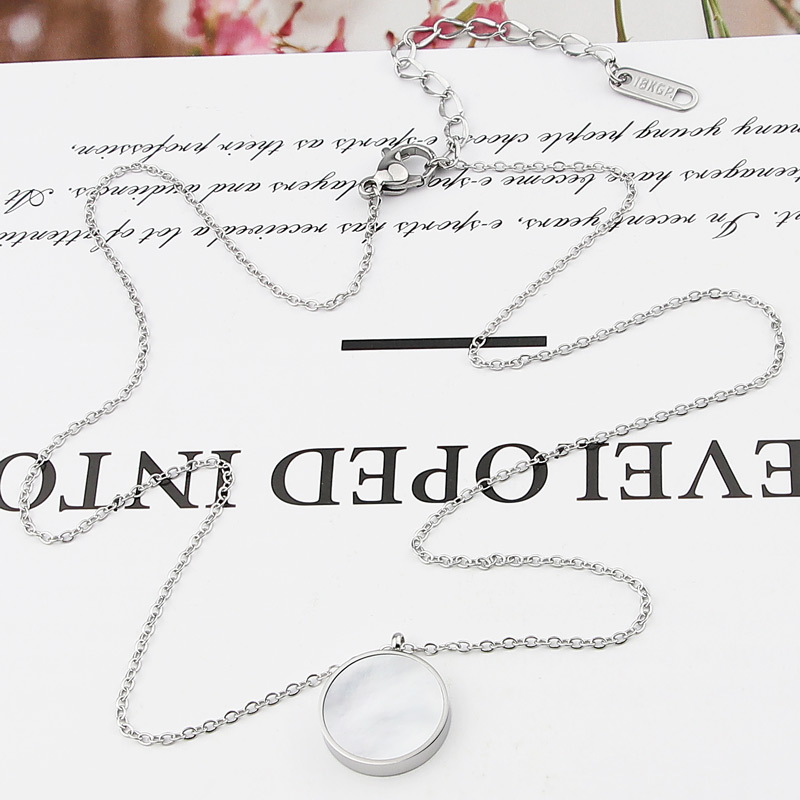 EVELOPED INTO
In recent years, e-sports has received a lot of attenti
teenagers have become e-sports players and audiences. At
many young people choose e-sports as their profession,
18KGP